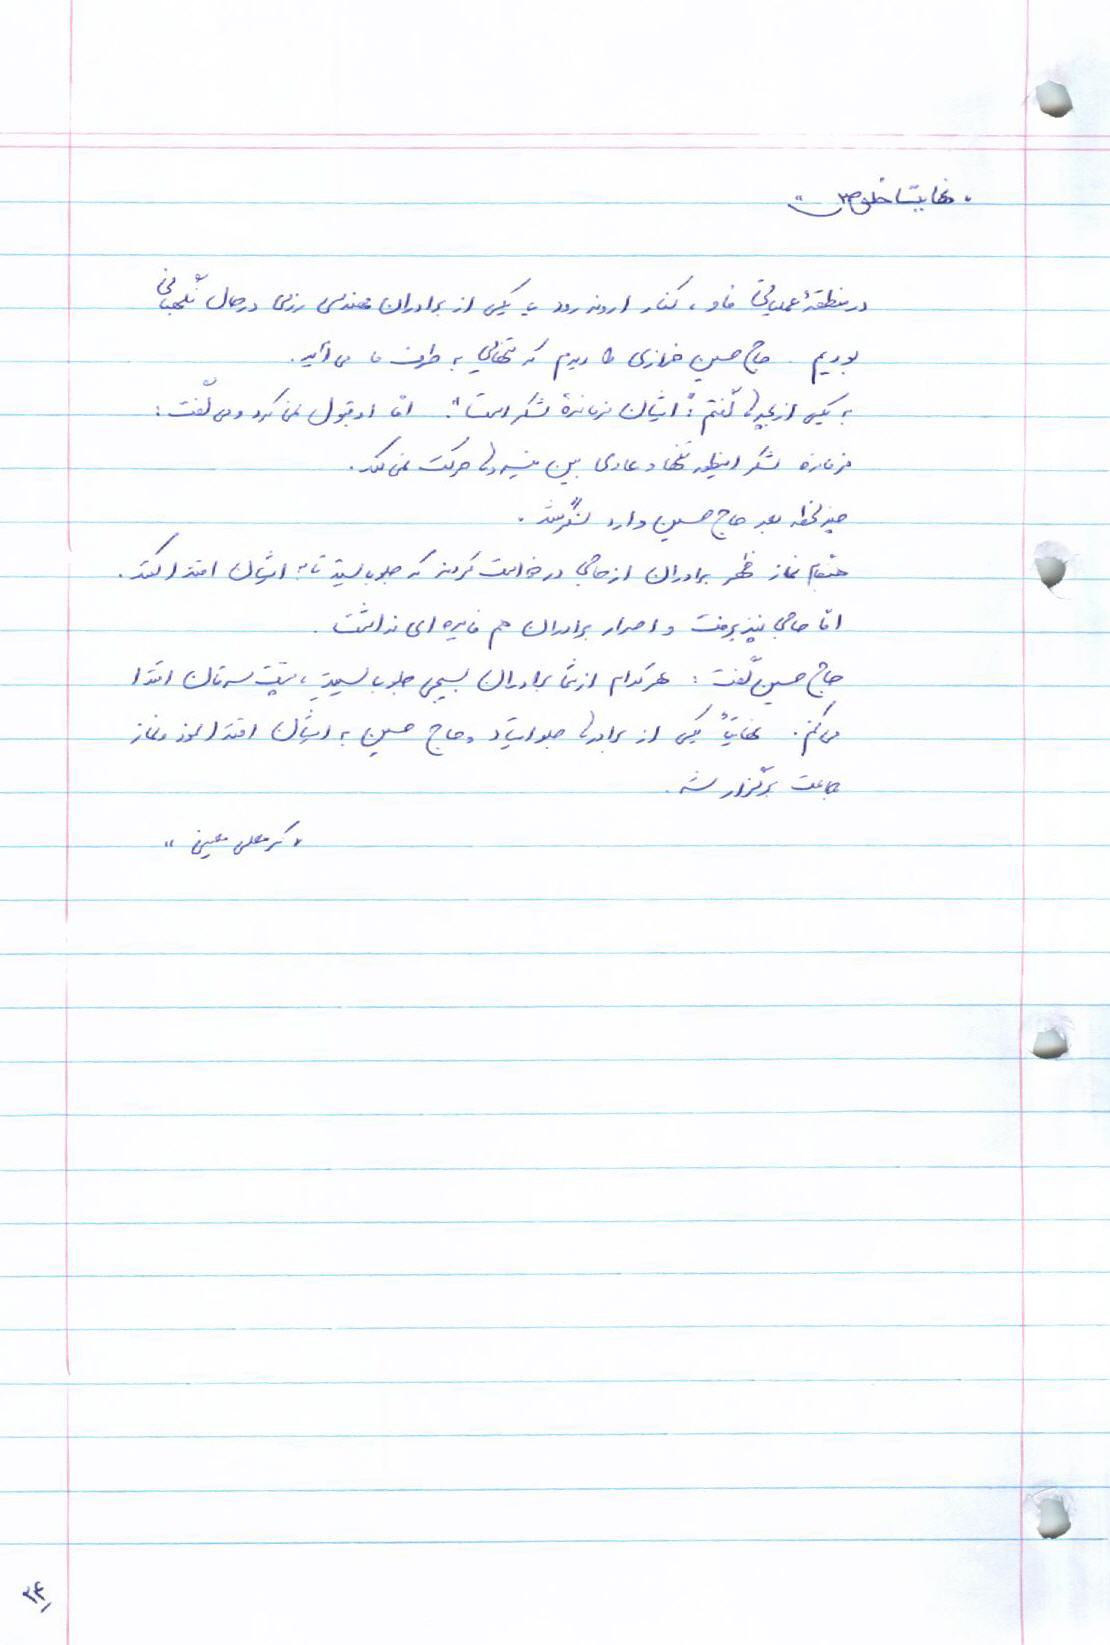 «نهایت اخلاص»
در منطقهٔ عملیاتی فاو، کنار اروند رود با یکی از برادران مهندسی رزمی در حال نگهبانی
بودیم. حاج حسین خرازی را دیدم که تنهایی به طرف ما می‌آید.
به یکی از بچه‌ها گفتم: «ایشان فرماندهٔ لشکر است». امّا او قبول نمی‌کرد و می‌گفت:
فرمانده لشکر اینطور تنها و عادی بین نیروها حرکت نمی‌کند.
چند لحظه بعد حاج حسین وارد سنگر شد.
هنگام نماز ظهر برادران از حاجی درخواست کردند که جلو بایستد تا به ایشان اقتدا کنند.
امّا حاجی نپذیرفت و اصرار برادران هم فایده‌ای نداشت.
حاج حسین گفت: هر کدام از شما برادران بسیجی جلو بایستید، پشت سرتان اقتدا
می‌کنم. نهایتاً یکی از برادرها جلو ایستاد و حاج حسین به ایشان اقتدا نمود و نماز
جماعت برگزار شد.
«کرمعلی معینی»
۲۴